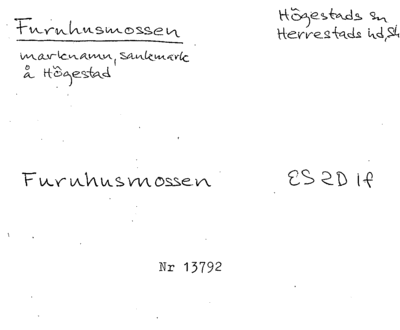 Furuhusmossen
Högestads sn
marknamn, sankmark
Herrestads hd, Sk
å Högestad
Furuhusmossen
ES 2D 1f
Nr 13792